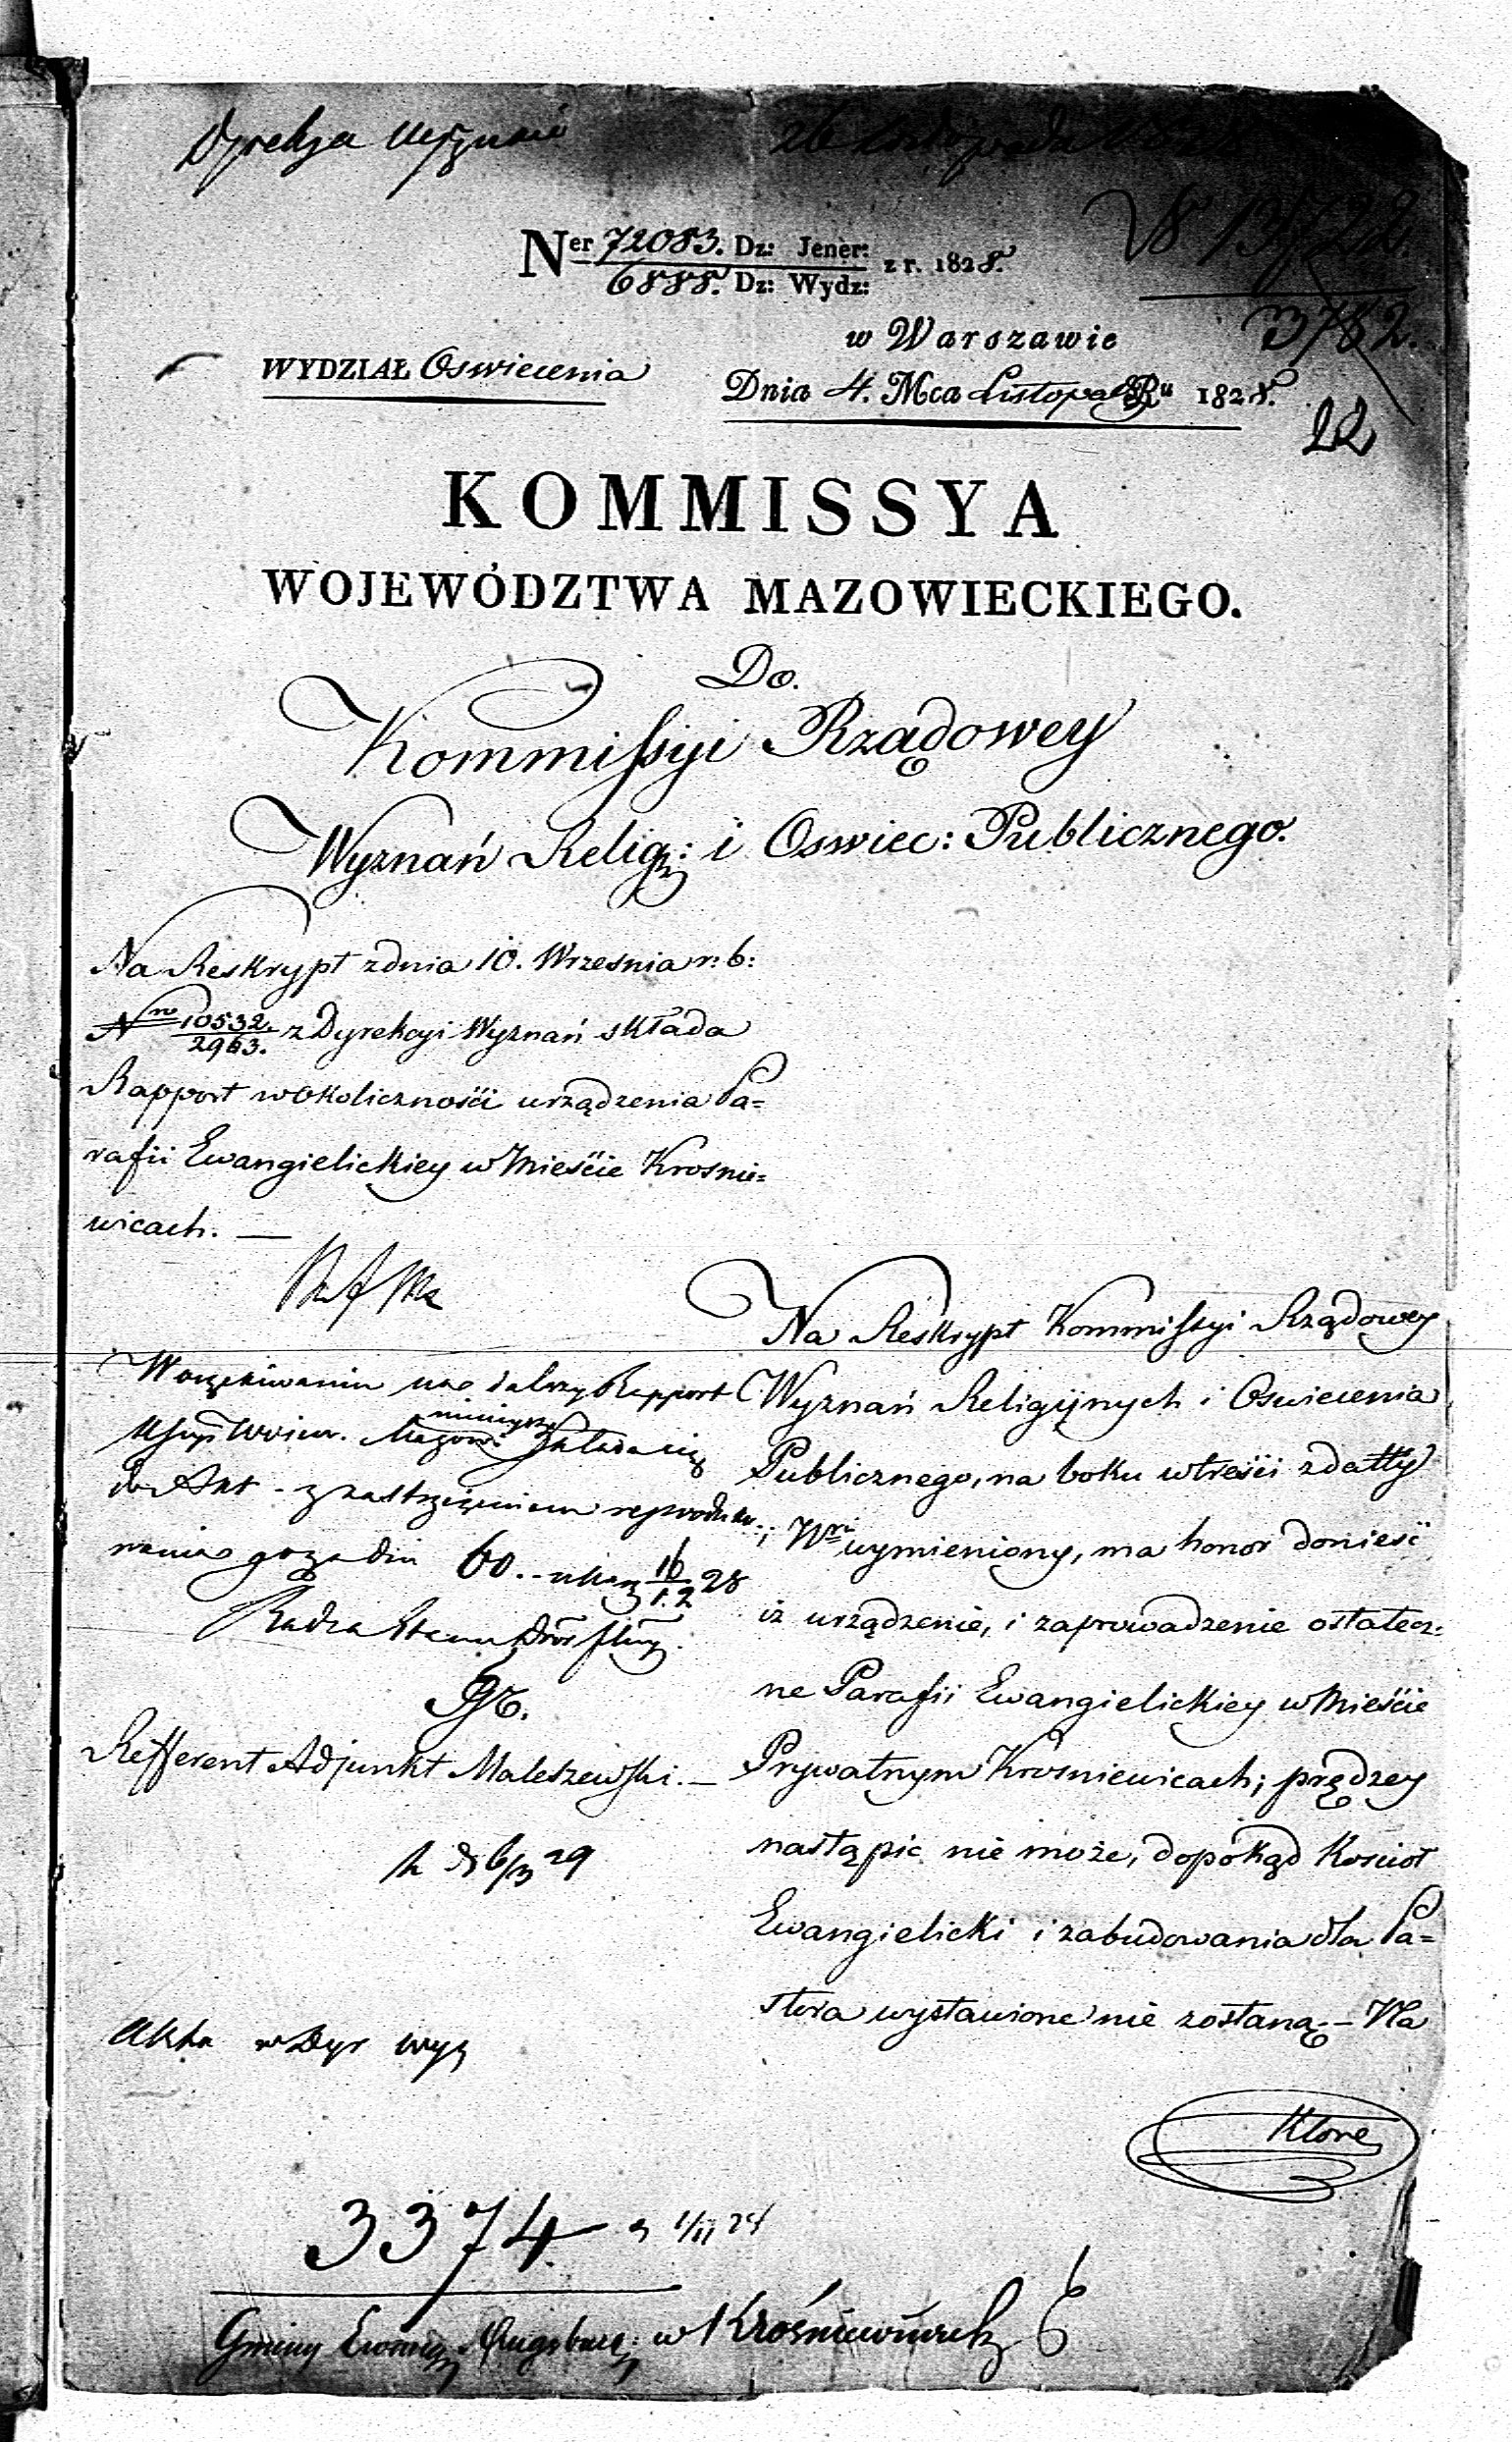 Dyrekcja Wyznań
26 Listopada
Ner 72083. Dz: Jener: z r. 1828.
6888. Dz: Wydz:
3782.
22
w Warszawie
WYDZIAŁ Oswiecenia
Dnia 4. Mca Listopada Ru 1828.
KOMMISSYA
WOJEWÓDZTWA MAZOWIECKIEGO.
Do.
Kommissyi Rządowey
Wyznań Relig: i Oswiec: Publicznego.
Na Reskrypt z dnia 10. Wrzesnia r: b:
Nro 10532/2963. z Dyrekcyi Wyznań składa
Rapport w okoliczności urządzenia Pa=
rafii Ewangielickiey w Mieście Krosnie=
wicach. —
W oczekiwaniu na dalszy Rapport
Kssyi Woiew. Mazow. ninieyszy składa się
do Akt - z zastrzeżeniem reproduko-
wania go za dni 60. -
Refferent Adjunkt Maleszewski. —
Akta w Dyr Wyz
Na Reskrypt Kommissyi Rządowey
Wyznań Religijnych i Oswiecenia
Publicznego, na boku w treści z datty
i Nru wymieniony, ma honor donieść
iż urządzenie, i zaprowadzenie ostatecz=
ne Parafii Ewangielickiey w Mieście
Prywatnym Krosniewicach; prędzey
nastąpic nie może, dopókąd Kosciół
Ewangielicki i zabudowania dla Pa=
stora wystawione nie zostaną. — Na
Które
3374
Gminy Ewang. Augsburg: w Krośniewicach